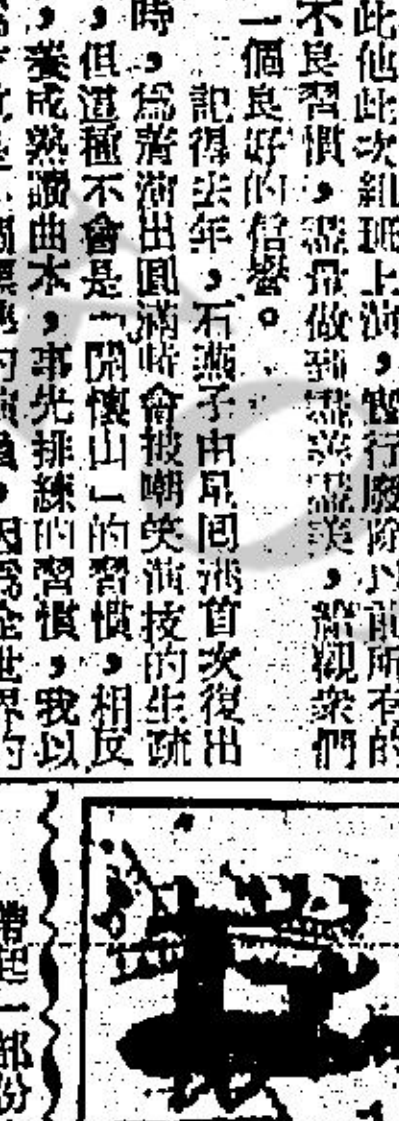 此他此次組班上演，實行廢除以前所有的
不良習慣，盡量做到盡善盡美，給觀衆們
一個良好的信譽。
記得去年，石燕子由星囘港首次復出
時，爲着演出圓滿時會被嘲笑演技的生疏
，但這種不會是「開懷山」的習慣，相反
，養成熟讀曲本，事先排練的習慣，我以
因爲全世界的
帶起一部份